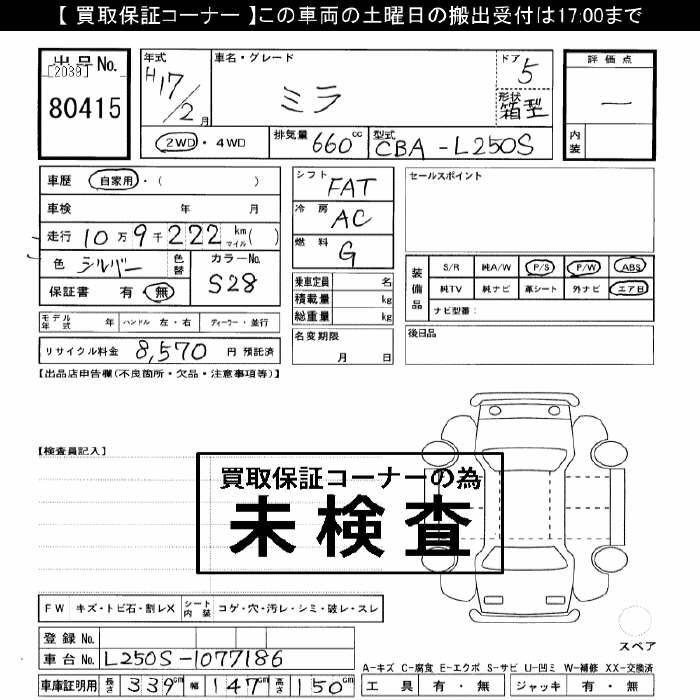 【 買取保証コーナー 】この車両の土曜日の搬出受付は17:00まで
出品No.
[2039]
80415
年式
H17/2月
車名・グレード
ミラ
ドア
5
形状
箱型
評価点
―
内装
2WD・4WD
排気量 660cc
型式 CBA-L250S
車歴 自家用・( )
車検 年 月
走行 10万9千222 km マイル( )
色 シルバー
色替
カラーNo.
S28
保証書 有・無
モデル年式 年 ハンドル 左・右 ディーラー・並行
リサイクル料金 8,570 円 預託済
シフト FAT
冷房 AC
燃料 G
乗車定員 名
積載量 kg
総重量 kg
名変期限
月 日
セールスポイント
装備品
S/R 純A/W P/S P/W ABS
純TV 純ナビ 革シート 外ナビ エアB
ナビ型番:
後日品
【出品店申告欄(不良箇所・欠品・注意事項等)】
【検査員記入】
買取保証コーナーの為
未検査
FW キズ・トビ石・割レX
シート内装 コゲ・穴・汚レ・シミ・破レ・スレ
登録No.
車台No. L250S-1077186
車庫証明用 長さ 339cm 幅 147cm 高さ 150cm
スペア
A-キズ C-腐食 E-エクボ S-サビ U-凹ミ W-補修 XX-交換済
工具 有・無 ジャッキ 有・無